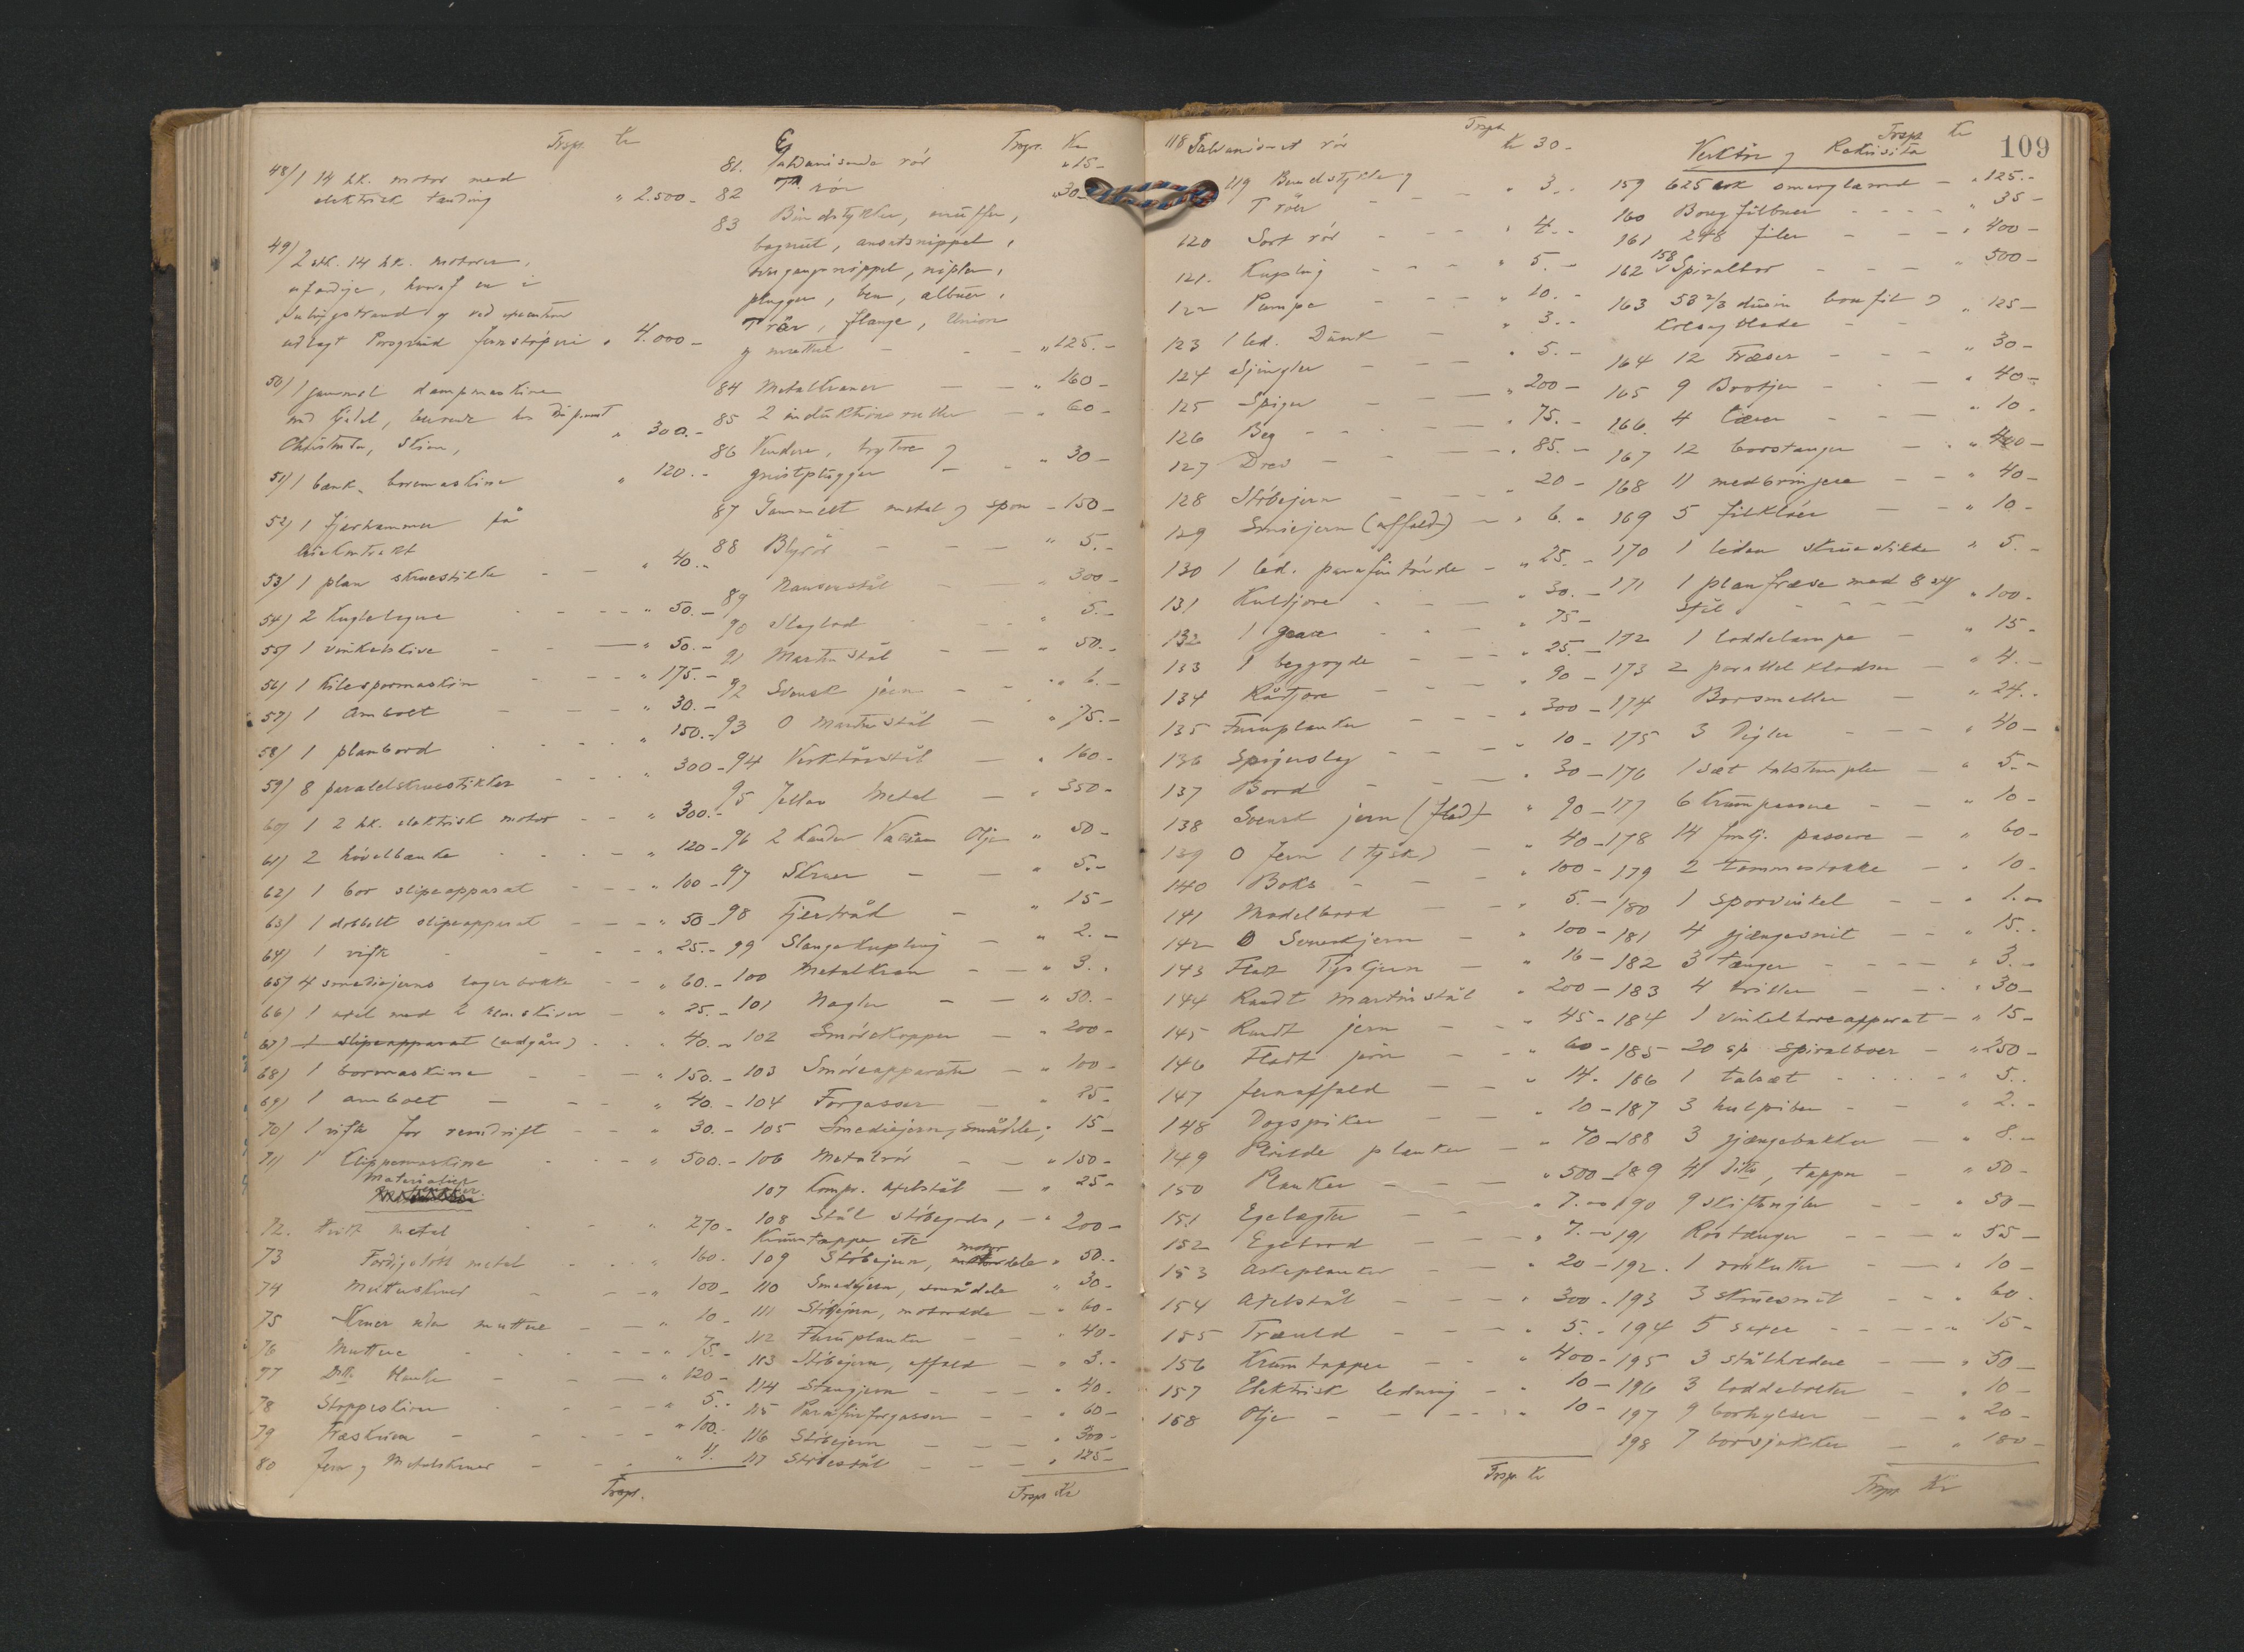 Trsp. Kr
48/ 1 14 hk. motor med
elektrisk tænding " 2.500 -
49/ 2 stk. 14 hk. motorer,
uferdige, hvoraf en i
og ved
utlagt Porsgrund Jernstøperi " 4.000 -
50/ 1 gammel dampmaskine
med kjedel, beroende hos
Skien, " 300.-
51/ 1 bænk. boremaskine " 120.-
52/ 1 fjærhammer på
leiekontrakt
53/ 1 plan skruestikke - - " 40.-
54/ 2 Kuglelagre - - - " 50.-
55/ 1 vinkelskive - - " 50.-
56/ 1 Kilespormaskin - - - " 175.-
57/ 1 Ambolt - - - " 30.-
58/ 1 planbord " 150.-
59/ 8 paralelskruestikker - - " 300 -
60/ 1 2 hk. elektrisk motor - - " 300.-
61/ 2 høvelbænke - " 120 -
62/ 1 bor slipeapparat - - " 100 -
63/ 1 dobbelt slipeapparat - - - " 50 -
64/ 1 vifte - - - " 25.-
65/ 4 smediejerns lagerbokke - - " 60.-
66/ 1 axel med 2 rem.skiver - " 25.-
67/ 1 slipeapparat (udgår) - " 40.-
68/ 1 bormaskine - - " 150.-
69/ 1 ambolt - - - " 40.-
70/ 1 vifte for remdrift - - " 30.-
71/ 1 Klippemaskine - - " 500.-
Materialier
72. Hvitt metal - - " 270 -
73 metal - - " 160 -
74 Mutterskruer - - " 100 -
75 Skruer uden muttere - - " 10 -
76 Muttere - - " 75.-
77 Ditto blanke - - " 120 -
78 Stoppeskiver - - " 5.-
79 Træskruer - - " 100.-
80 Jern og Metalskruer - - " 4.
Trsp.
Trspr. Kr
81. Galvaniserede rør " 15 -
82 T rør " 30 -
83 Bindstykker, muffer,
bagnut, ansatsnippel,
overgangsnippel, nipler,
plugger, ben, albuer,
T rør, flange, Union
og muttere - - " 125.-
84 Metalkraner - - " 160 -
85 2 induktionsruller - " 60 -
86 Vendere, brytere og
gnistplugger - - " 30 -
87 Gammelt metal og spon - 150 -
88 Blyrør - - - " 5.-
89 Nansenstål - - " 300 -
90 Slaglod - - " 5.-
91 Martinstål - - " 50.-
92 Svensk jern - - " 6.-
93 O Martinstål - " 75.-
94 Verktøistål - " 160 -
95 Yellow Metal - " 350 -
96 2 kander Olje " 50 -
97 Skruer - - " 5.-
98 Fjertråd - " 15 -
99 Slangekupling - " 2.-
100 Metalkran - - " 3.-
101 Nagler - - " 50.-
102 Smørekopper - " 200 -
103 Smøreapparater - " 100 -
104 Forgasser - " 25 -
105 Smediejern, smådele, 15 -
106 Metalrør - - " 150 -
107 Kompr. axelstål - " 25 -
108 Stål støbegods, - " 200 -
Krumtapper etc
109 Støbejern, motordele " 50.-
110 Smedejern, smådele " 30 -
111 Støbejern, motordele - " 60 -
112 Furuplanker - - " 40 -
113 Støbejern, affald - " 3.-
114 Stangjern - - - " 40.-
115 Parafinforgasser - - " 60 -
116 Støbejern - - - " 300 -
117 Støbestål - - - " 125 -
Trsp Kr
Trspt Kr 30 -
118 Galvaniseret rør
119 Bendstykke og
T rør - - - " 3.-
120 Sort rør - - - " 4.-
121. Kupling - - - " 5.-
122 Pumpe - - - " 10.-
123 1 led. Dunk - " 3.-
124 Sjingler - - - " 5.-
125 Spiger - - - " 200 -
126 Beg - - - " 75.-
127 Drev - - - " 85.-
128 Støbejern - - - " 20 -
129 Smiejern (affald) - " 6.-
130 1 led. parafintønde - " 25.-
131 Kultjære - - - " 30.-
132 1 - - - " 75 -
133 1 beggryde - - - " 25.-
134 Råtjære - - - " 90 -
135 Furuplanker - - - " 300 -
136 Spigerslag - - - " 10 -
137 Bord - - - " 30 -
138 Svensk jern (flad) " 90 -
139 O Jern (tysk) - " 40 -
140 Boks - - - " 100 -
141 Modelbord - - " 5.-
142 O Svenskjern - " 100 -
143 Flatt Tyskjern - " 16 -
144 Rundt Martinstål " 200 -
145 Rundt jern - - " 45 -
146 Fladt jern - - " 60 -
147 Jernaffald - - " 14.-
148 Dogspiker - " 10 -
149 planker - " 70 -
150 Planker - - - " 500 -
151 Egelægter - - - " 7.-
152 Egebord - - - " 7.-
153 Askeplanker - - - " 20 -
154 Axelstål - - - " 300 -
155 Træuld - - - " 5.-
156 Krumtapper - - " 400 -
157 Elektrisk ledning - " 10 -
158 Olje - - - " 10 -
Trsp. Kr
109
Trsp Kr
Verktøi og Rekvisita
159 625 ark smergellerred - " 125.-
160 Baugfilbuer - - - " 35 -
161 248 filer - - " 400 -
162 158 Spiralbor - - - " 500 -
163 53 2/3 dusin baufil og " 125 -
blade - -
164 12 Fræser - - - " 30 -
165 9 - - " 40 -
166. 4 - - " 10.
167 12 borstanger - " 400 -
168 11 medbringere - - " 40 -
169 5 filkløer - - " 10 -
170 1 liden skruestikke " 5.-
171 1 planfræse med 8 stk
stål - - - " 100 -
172 1 loddelampe - " 15 -
173 2 parallel klodser - " 4.-
174 Borsmeller - " 24.-
175 3 Digler - - - " 40 -
176 1 sæt talstempler - " 5.-
177 6 Krumpassere - - " 10 -
178 14 passere - " 60 -
179 2 tommestokke - - " 10 -
180 1 sporvinkel - - " 1.-
181 4 gjængesnit - - " 15.-
182 3 tænger - - - " 3.-
183 4 driller - - " 30 -
184 1 vinkelboreapparat - " 15 -
185 20 sp spiralbor - " 250 -
186 1 talsæt - - - " 5.-
187 3 hulpiber - - " 2.-
188 3 gjængebakker - " 8.-
189 41 ditto, tapper - " 50 -
190 9 skiftnøgler - - " 50 -
191 Rørtænger - - " 55 -
192. 1 rørkutter - - " 10 -
193 3 skruesnit - - " 60 -
194 5 saxer - - - " 15 -
195 3 stålholdere - - " 50 -
196 3 loddebolter - " 10 -
197 9 borhylser - - " 20 -
198 7 borsjakker - " 180 -
Trspr. Kr